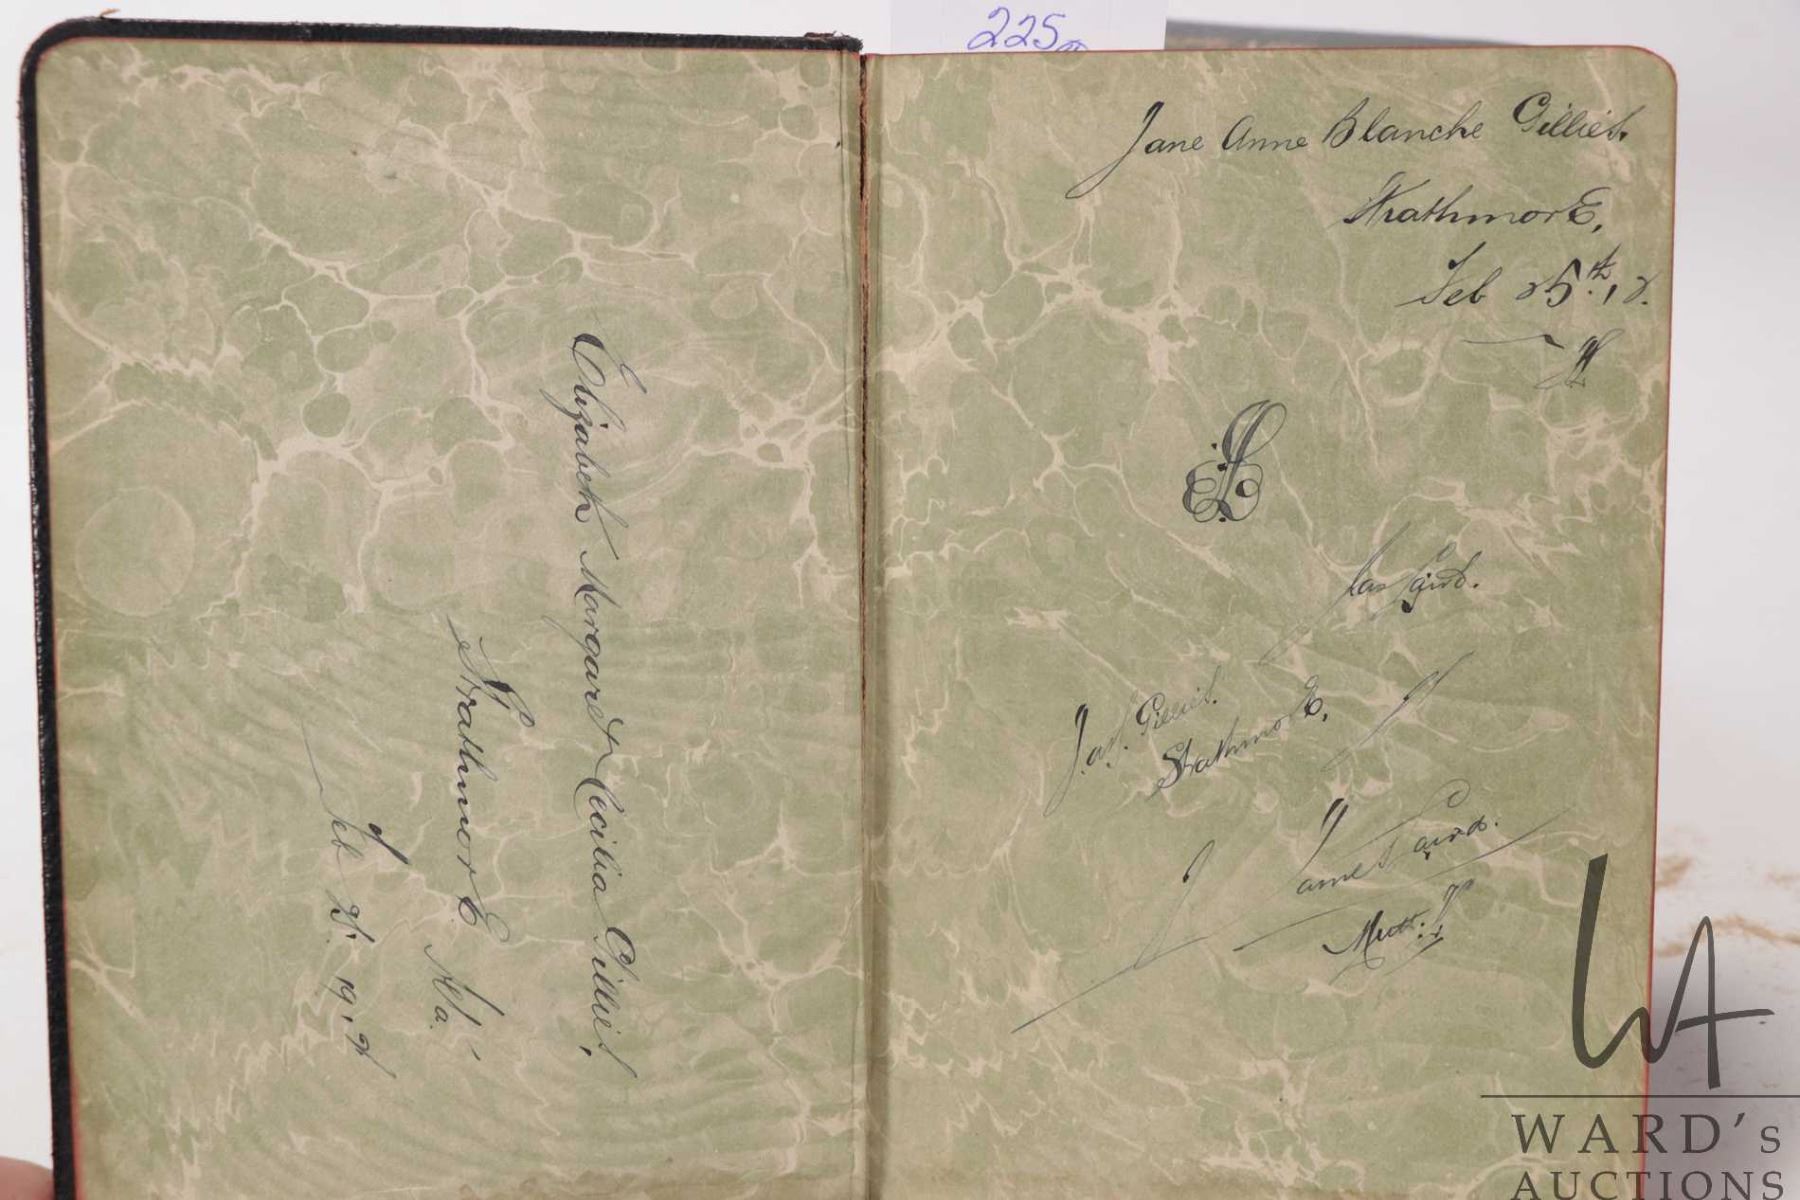 225
Elizabeth Margaret Cecilia Gillies,
Strathmore
Feb
Jane Anne Blanche Gillies.
Strathmore,
Feb 25th, 12.
Jas Laird.
Jas. Gillies.
Strathmore,
James Laird.
WA
WARD's
AUCTIONS